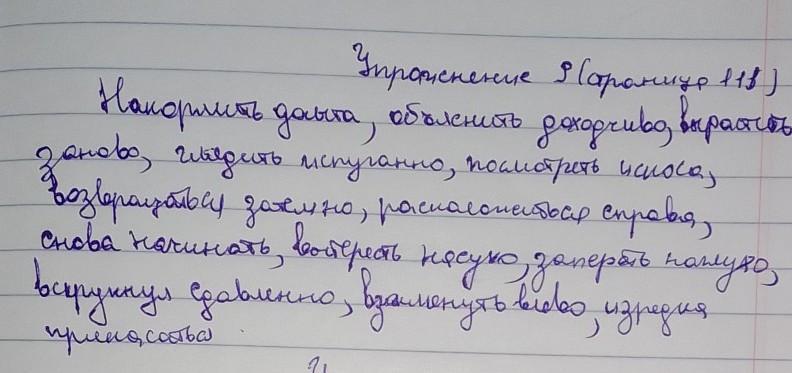 Упражнение 9 (страница 111)
Накормить досыта, объяснить доходчиво, вырастить
заново, глядеть испуганно, посмотреть искоса,
возвращаться затемно, располагаться справа,
снова начинать, вытереть насухо, запереть наглухо,
вскрикнул сдавленно, влево, изредка